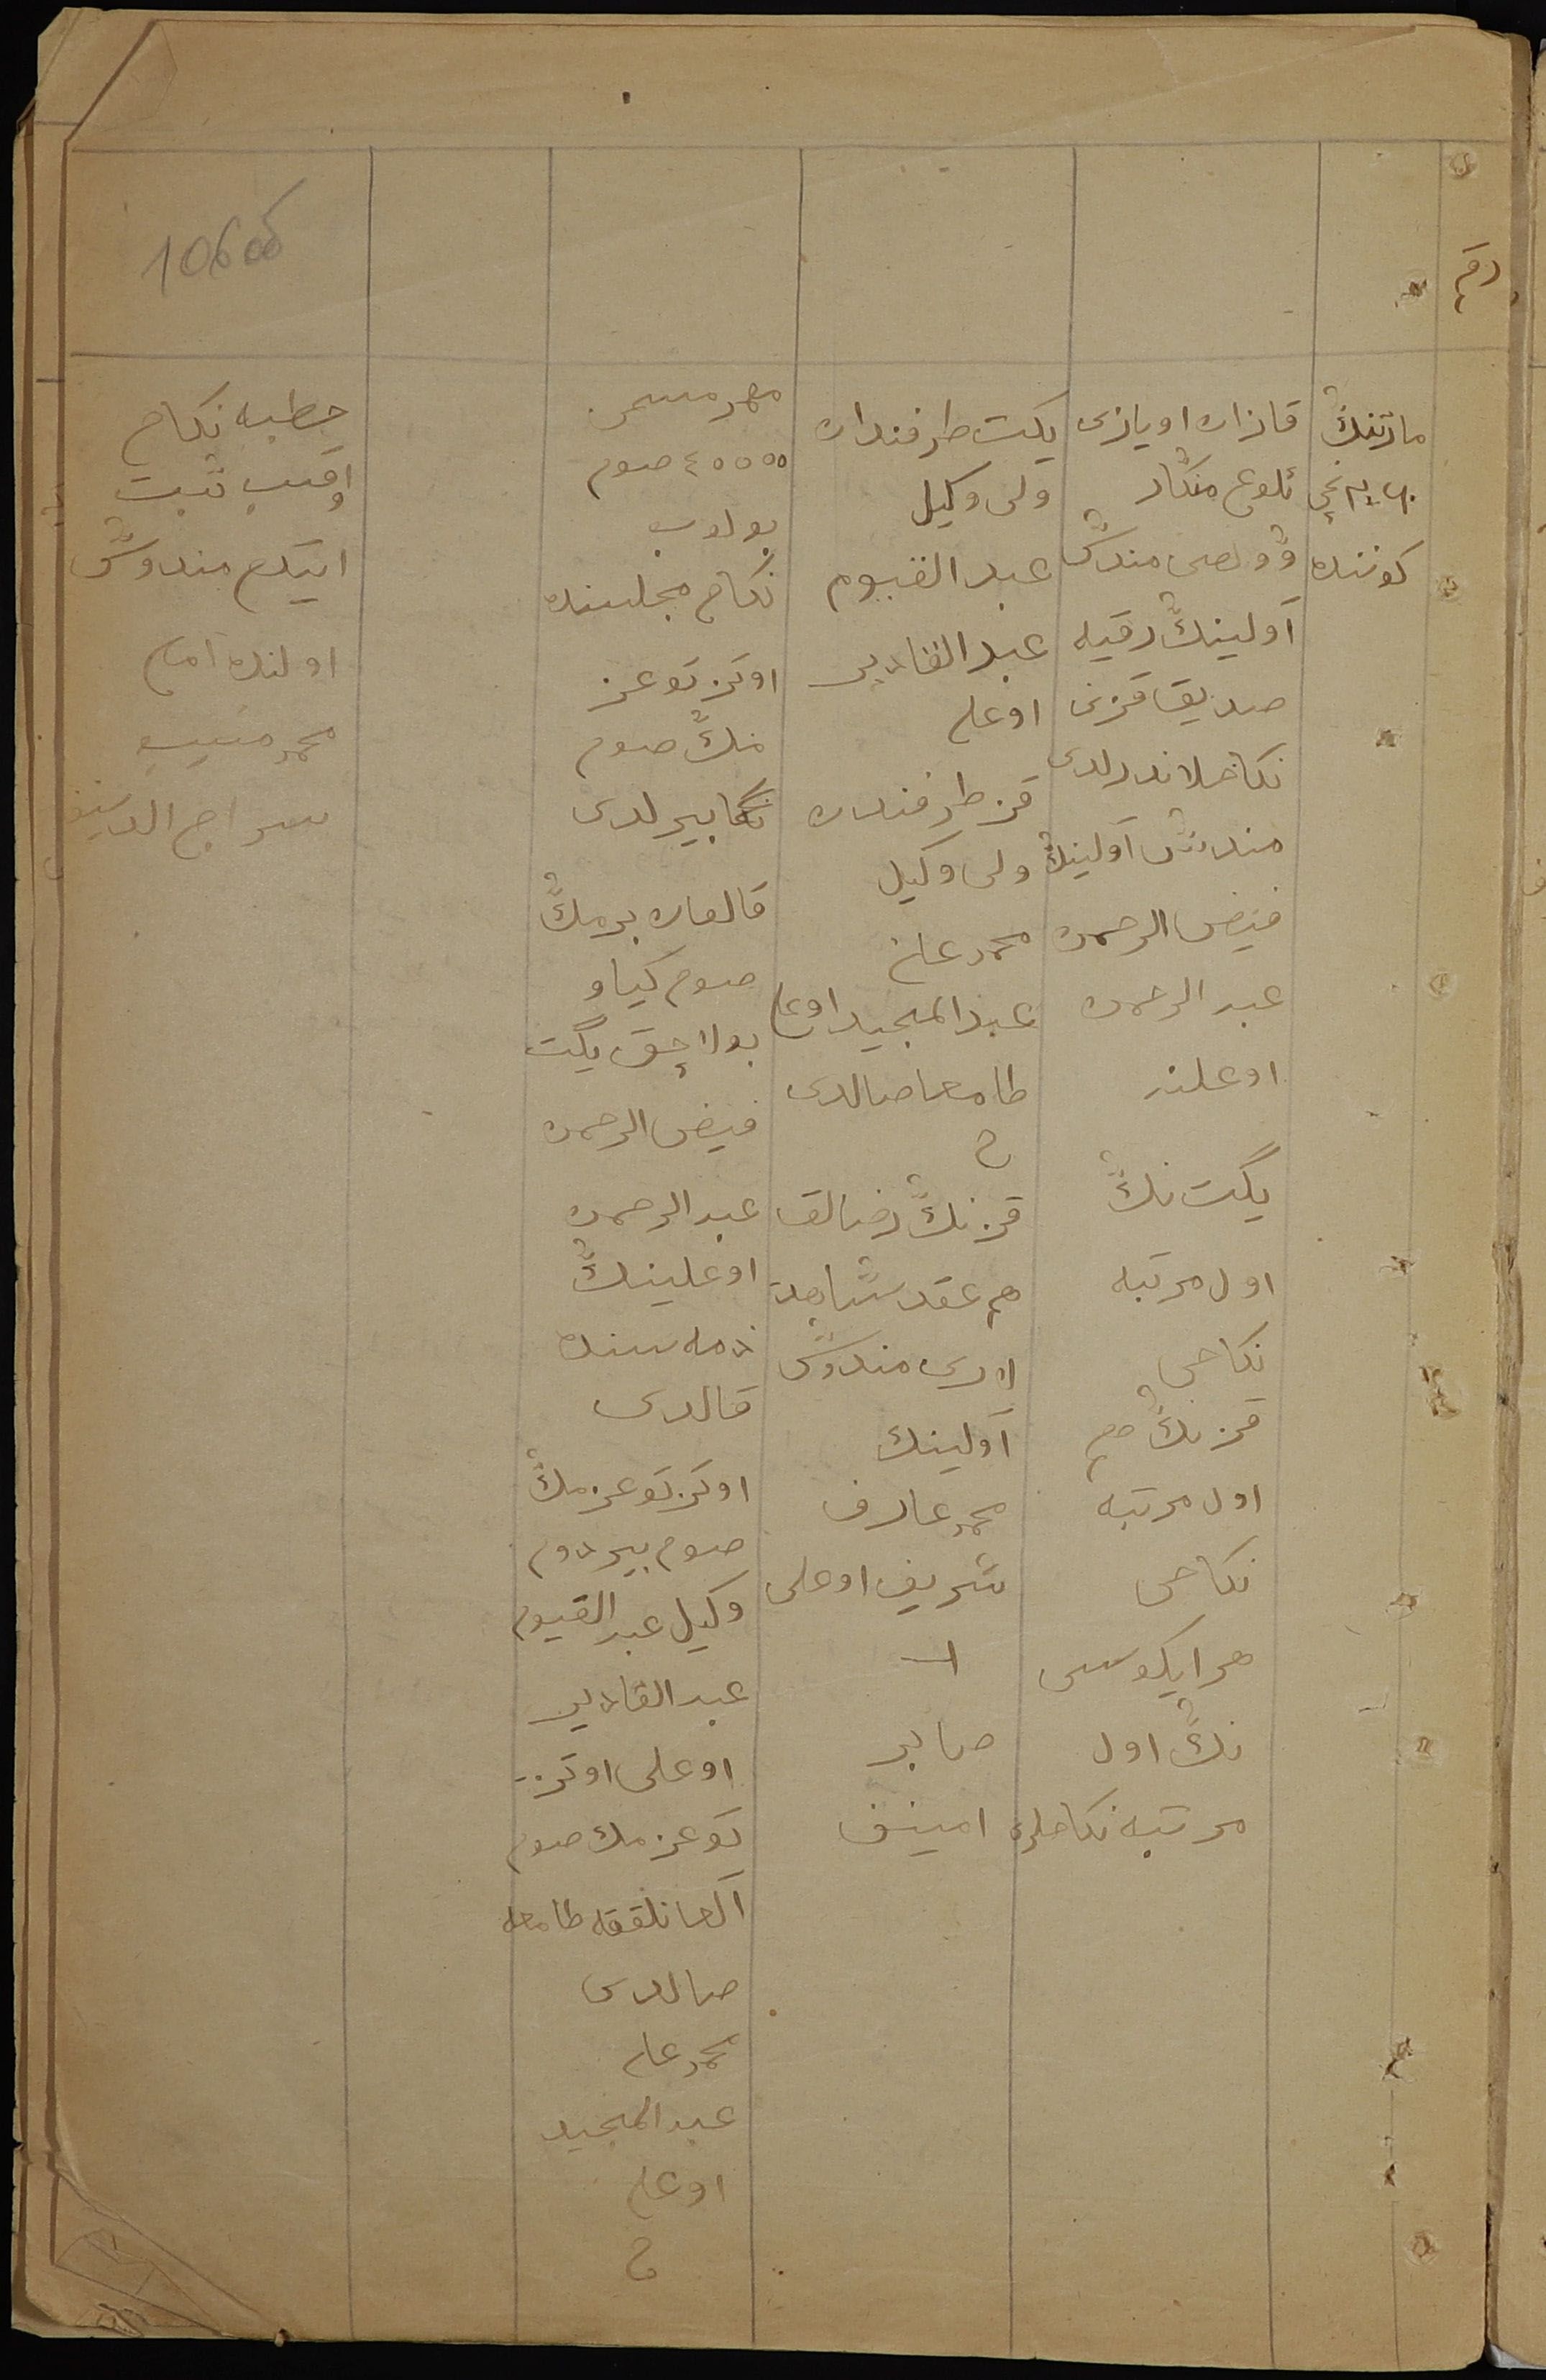 رقم
106 об
مارتنڭ
نچی
كوننده
قازان اويازی
ئلوغ منگار
وولصی مندش
آولينڭ رقيه
صديق قزنی
نكاحلاندرلدی
مندش آولينڭ
فيض الرحمن
عبد الرحمن
اوغلنه
يگت نڭ
اول مرتبه
نكاحی
قزنڭ هم
اول مرتبه
نكاحی
هر ايكوسی
نڭ اول
مرتبه نكاحلری
يكت طرفندان
ولی وكيل
عبد القيوم
عبد القادير
اوغلی
قز طرفندن
ولی وكيل
محمد جان
عبد المجيد اوغلی
طامغا صالدی
قزنڭ رضالق
هم عقد شاهد
لاری مندوش
آولينك
محمد عارف
شريف اوغلی
صابر
امينف
مهر مسمی
٤٠٠٠٠ صوم
بولوب
نكاح مجلسنده
اوتز توغز
منڭ صوم
بيرلدی
قالغان بر منڭ
صوم كياو
بولاچق يگت
فيض الرحمن
عبد الرحمن
اوغلينڭ
ذمه سنده
قالدی
اوتز توغز منڭ
صوم بيردوم
وكيل عبد القيوم
عبد القادير
اوغلی اوتز
توغز منك صوم
آلغانلققه طامغه
صالدی
محمد جان
عبد المجيد
اوغلی
خطبه نكاح
اوقب ثبت
ايتدم مندوش
اولنده امام
محمد منيب
سراج الدينف